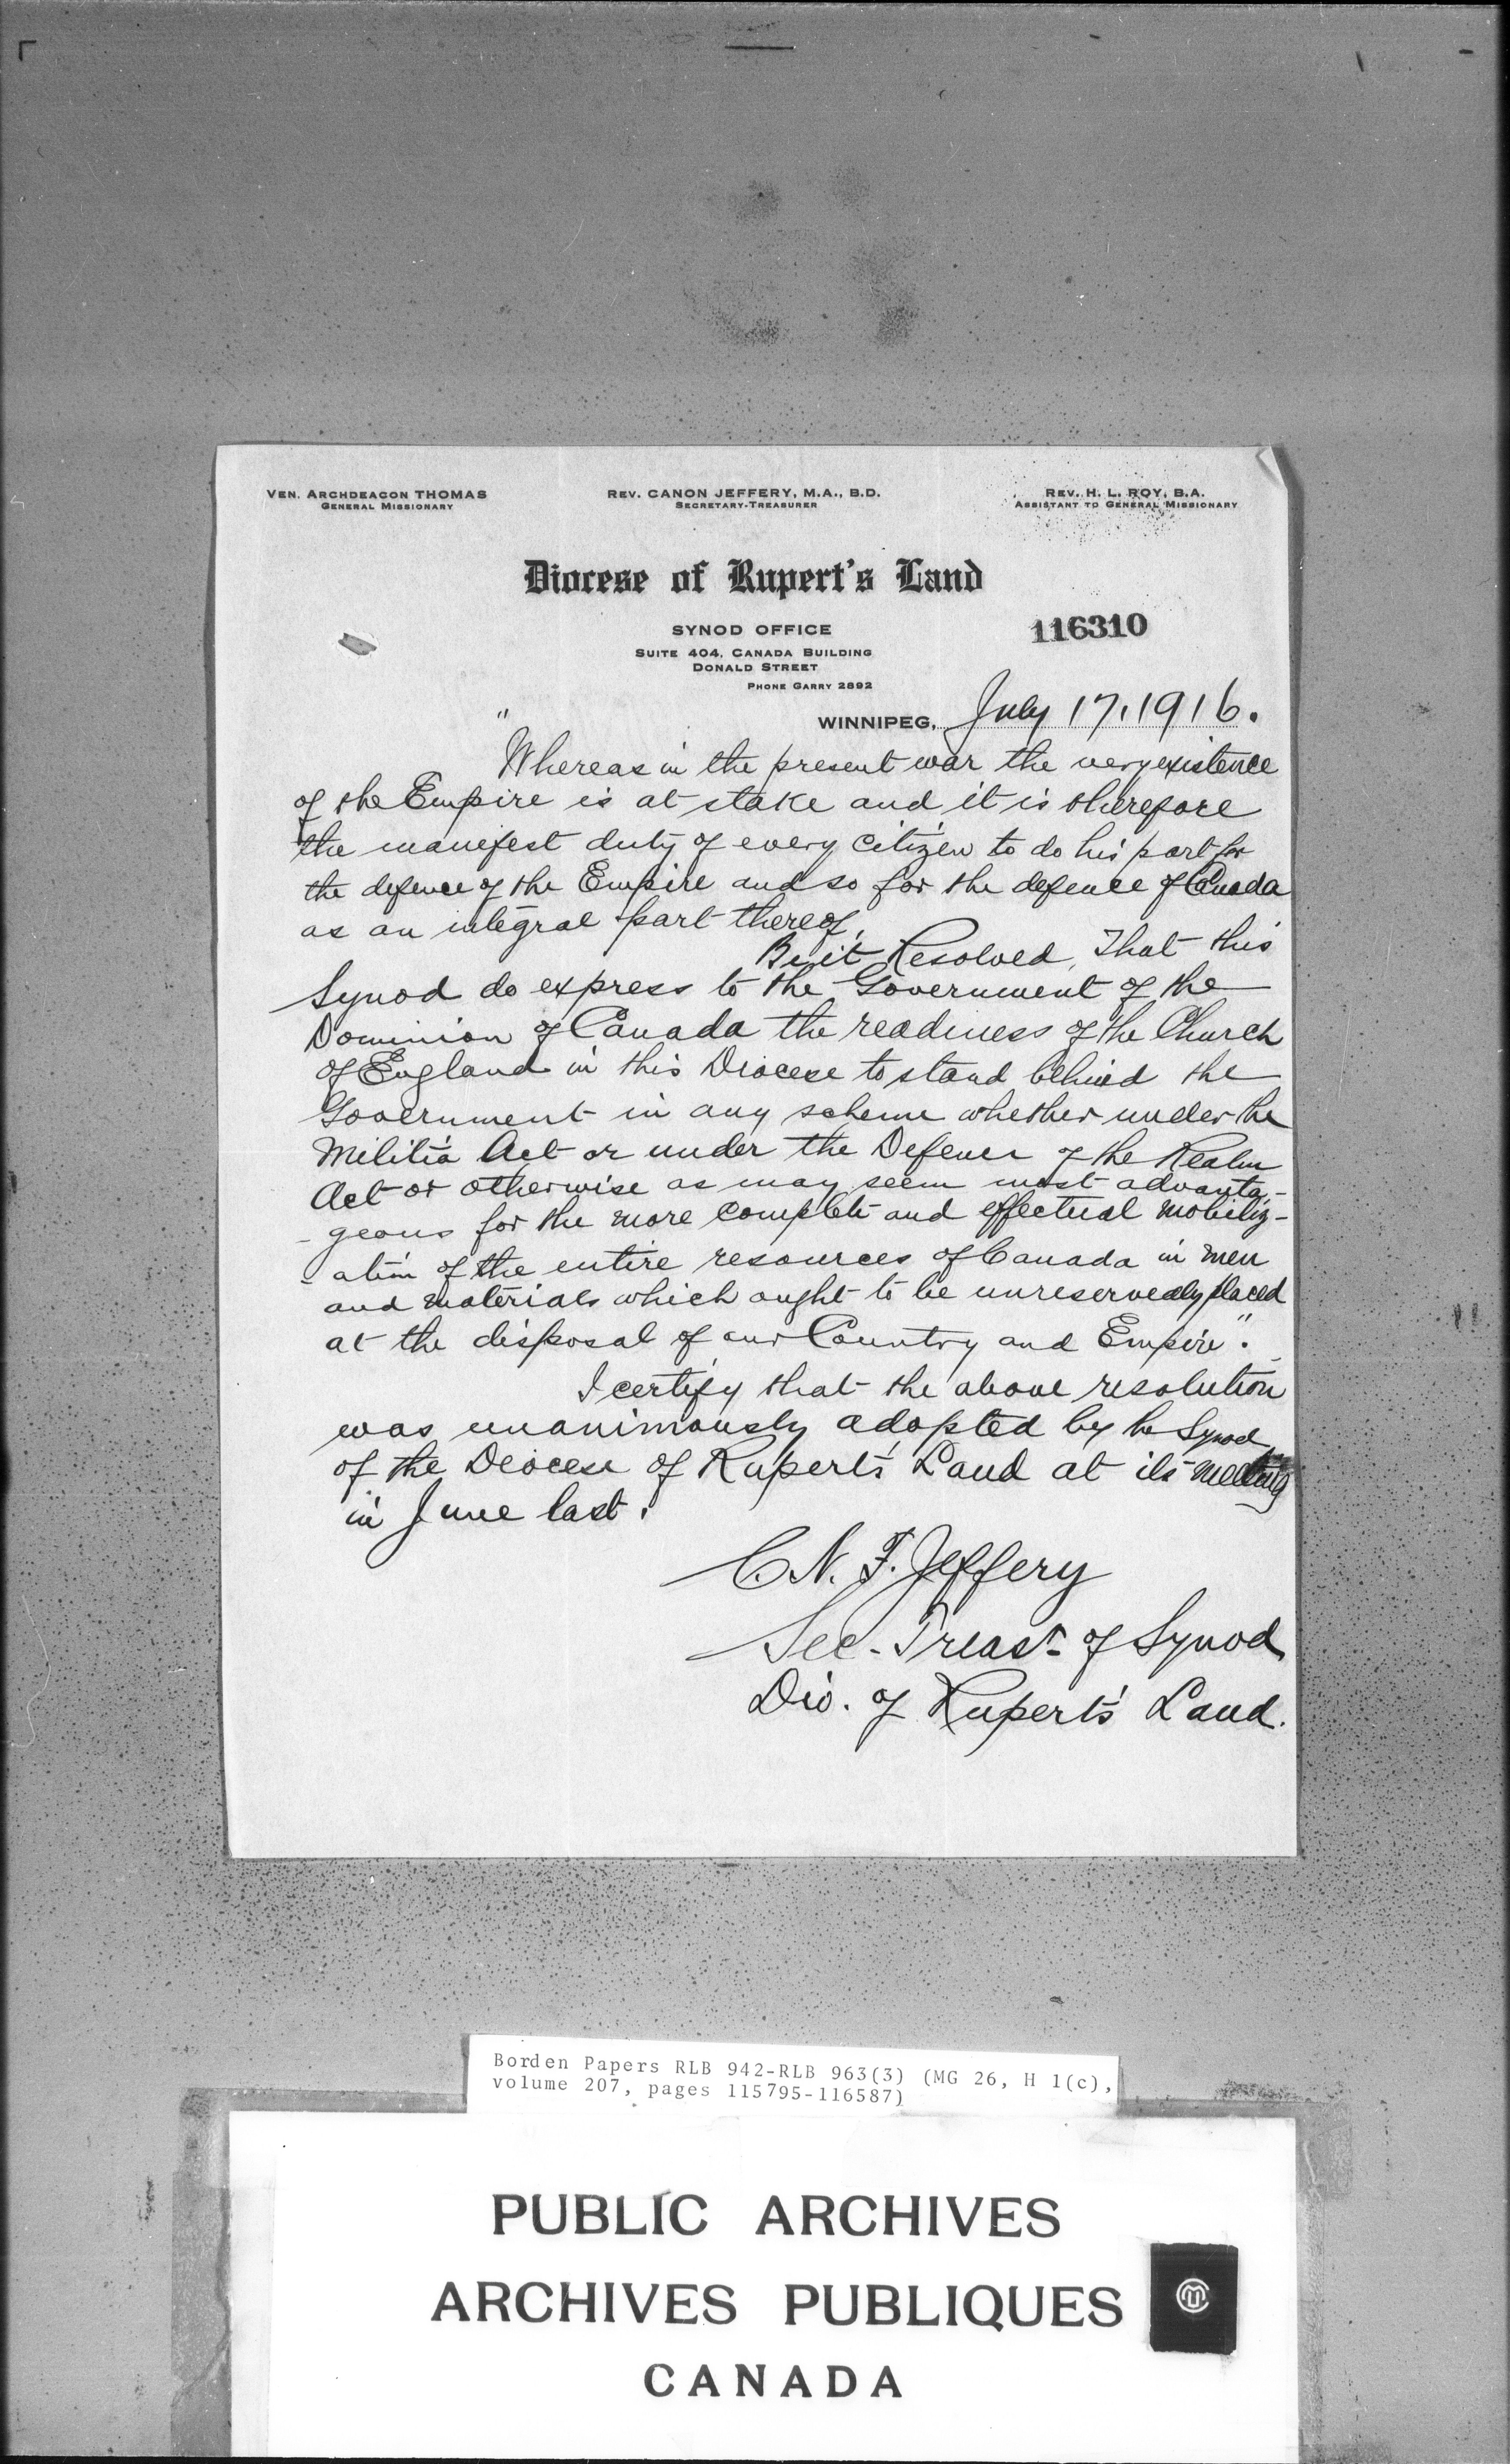 VEN. ARCHDEACON THOMAS
GENERAL MISSIONARY
REV. CANON JEFFERY, M.A., B.D.
SECRETARY-TREASURER
REV. H. L. ROY, B.A.
ASSISTANT TO GENERAL MISSIONARY
Diocese of Rupert's Land
SYNOD OFFICE
SUITE 404, CANADA BUILDING
DONALD STREET
PHONE GARRY 2892
116310
WINNIPEG, July 17, 1916.
"Whereas in the present war the very existence
of the Empire is at stake and it is therefore
the manifest duty of every citizen to do his part for
the defence of the Empire and so for the defence of Canada
as an integral part thereof,
Be it Resolved, That this
Synod do express to the Government of the
Dominion of Canada the readiness of the Church
of England in this Diocese to stand behind the
Government in any scheme whether under the
Militia Act or under the Defence of the Realm
Act or otherwise as may seem most advanta-
-geous for the more complete and effectual mobiliz-
-ation of the entire resources of Canada in men
and materials which ought to be unreservedly placed
at the disposal of our Country and Empire".
I certify that the above resolution
was unanimously adopted by the Synod
of the Diocese of Rupert's Land at its meeting
in June last.
C. N. F. Jeffery
Sec-Treasr of Synod
Dio. of Rupert's Land.
Borden Papers RLB 942-RLB 963(3) (MG 26, H 1(c),
volume 207, pages 115795-116587)
PUBLIC ARCHIVES
ARCHIVES PUBLIQUES
CANADA